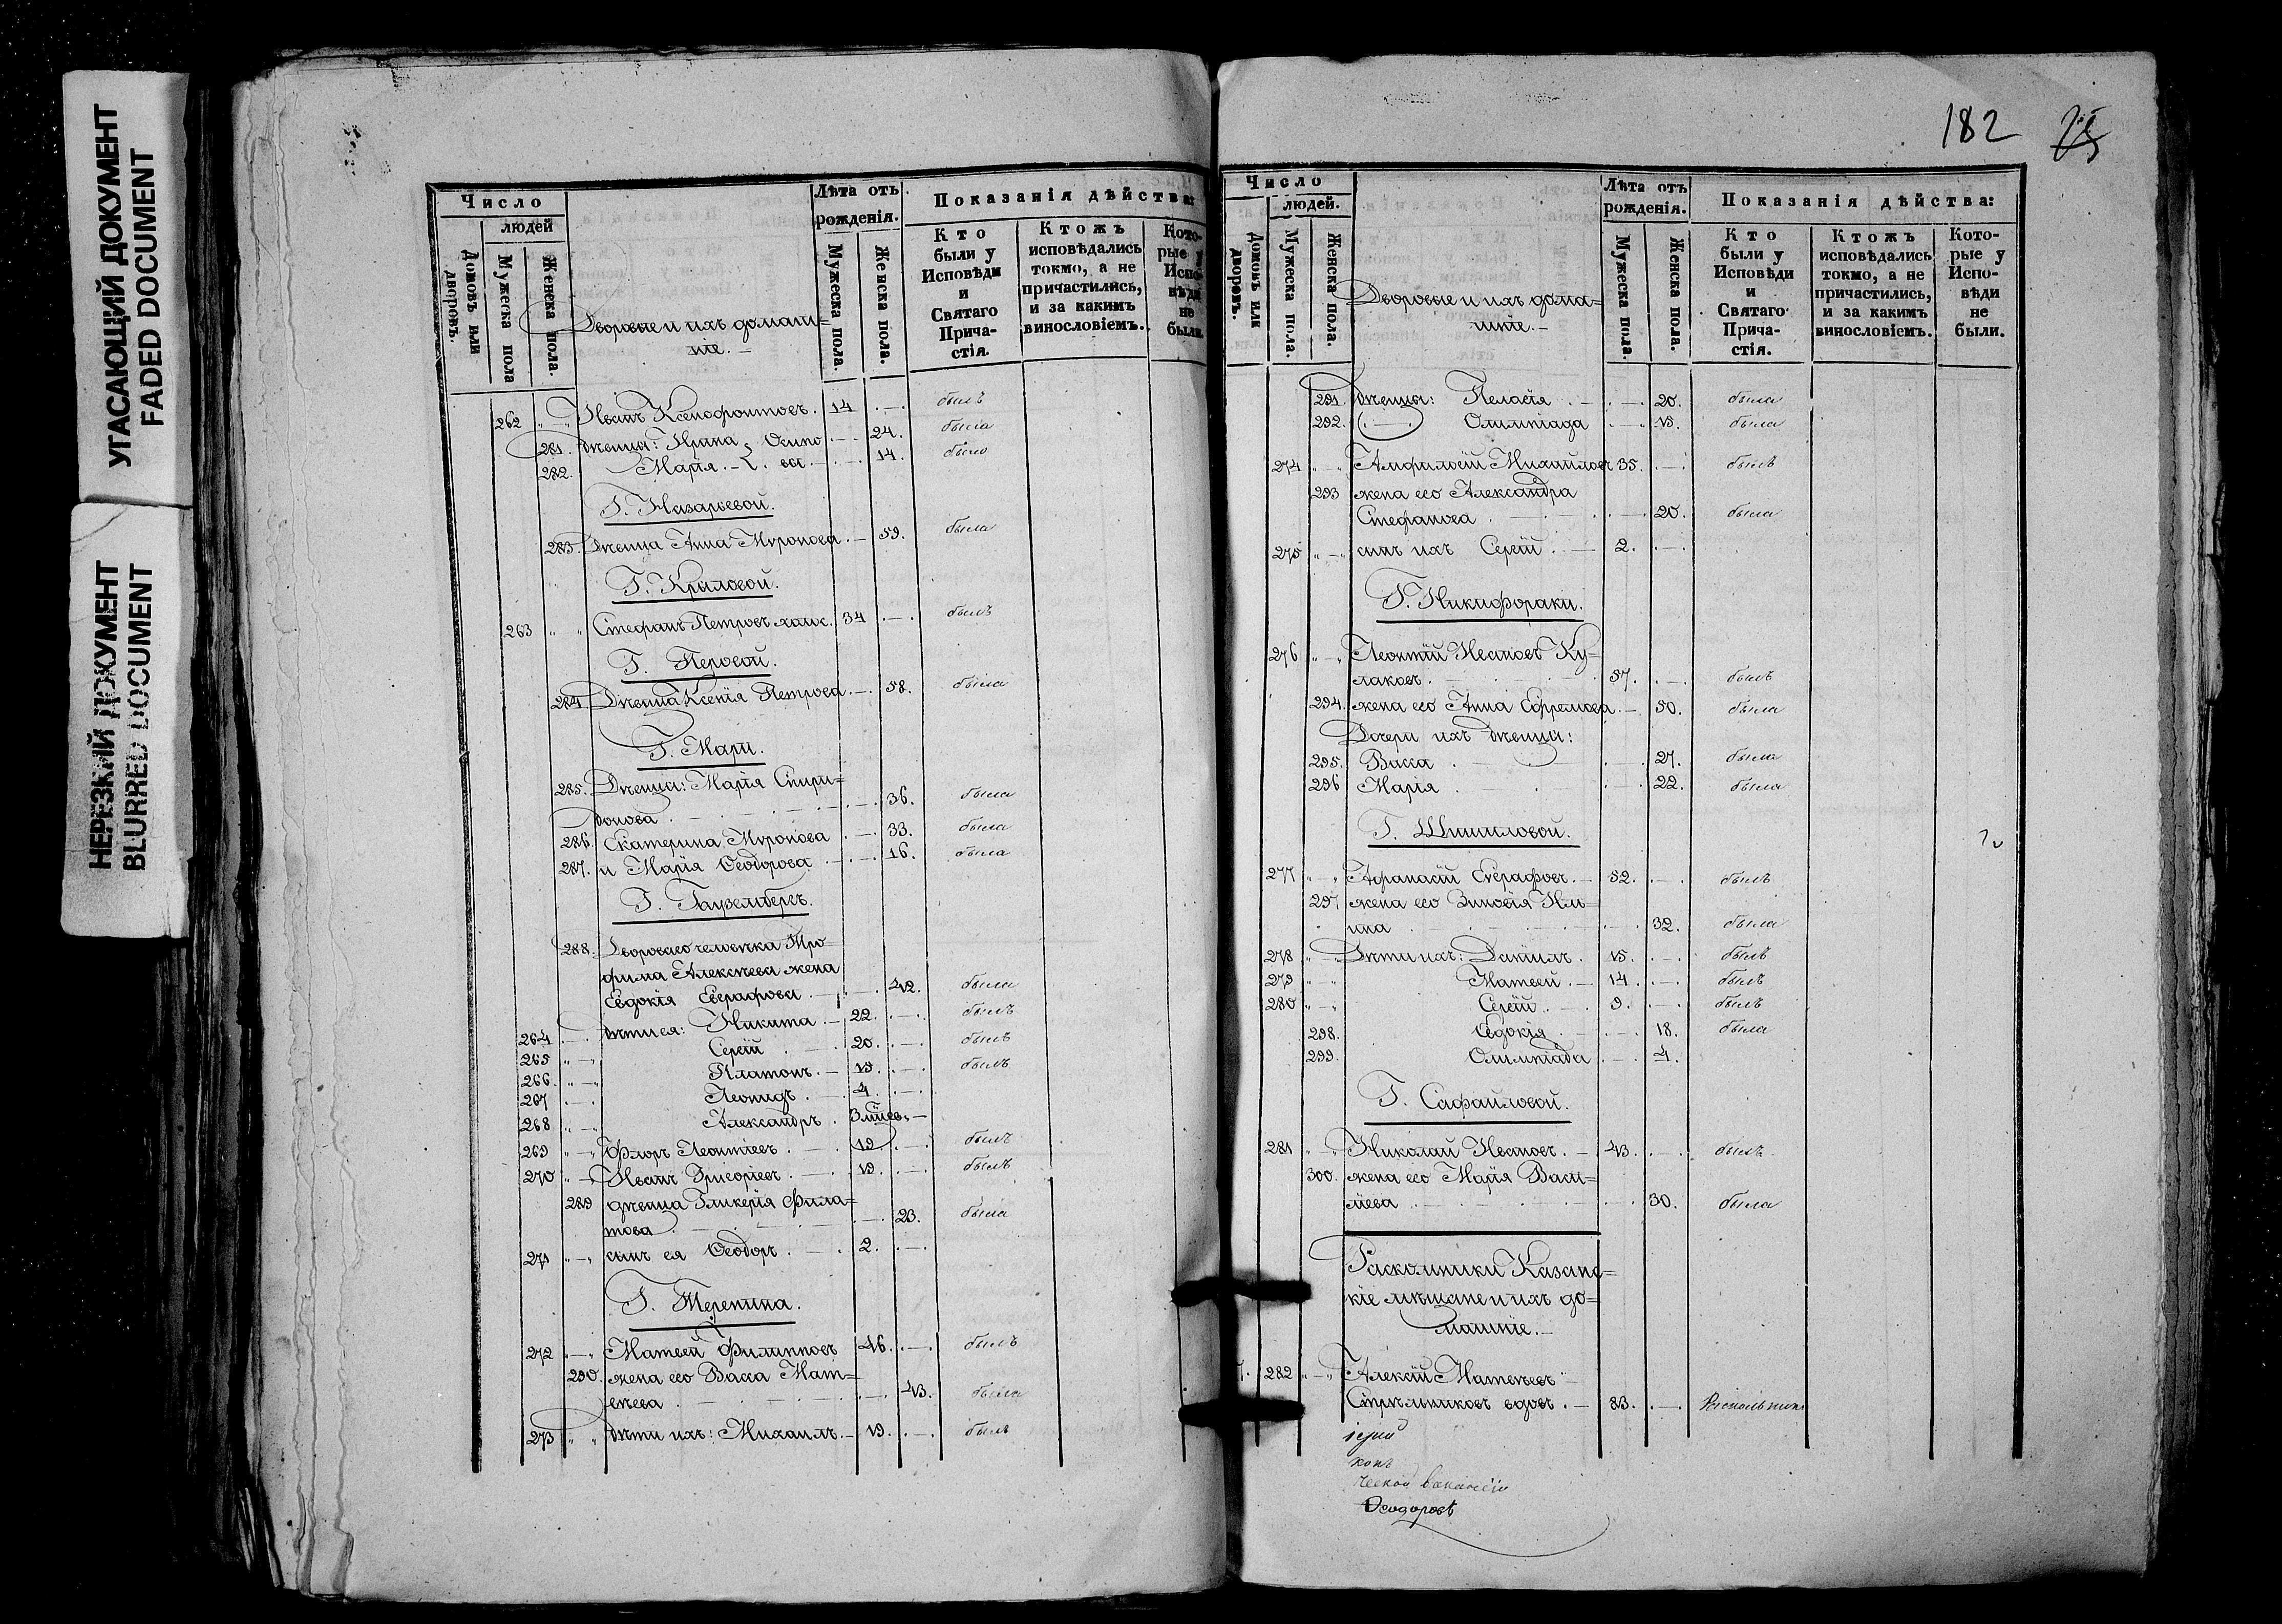 УГАСАЮЩИЙ ДОКУМЕНТ
FADED DOCUMENT
НЕРЕЗКИЙ ДОКУМЕНТ
BLURRED DOCUMENT
Число
людей
Домовъ или дворовъ.
Мужеска пола
Женска пола.
Дворовые и ихъ домаш=
ніе.
Лѣта отъ
рожденія.
Мужеска пола.
Женска пола.
Показанія дѣйства:
Кто
были у
Исповѣди
и
Святаго
Прича-
стія.
Ктожъ
исповѣдались
токмо, а не
причастились,
и за какимъ
винословіемъ.
Кото-
рые у
Испо-
вѣди
не
были.
262 Иванъ Ксенофонтовъ. 14 былъ
281. дѣвицы: Ирина Осипо 24. была
282. Марія вы. 14. была
Г. Назарьевой.
283. Дѣвица Анна Мѵронова 59. была
Г. Крыловой.
263 Стефанъ Петровъ холос. 34 былъ
Г. Перовой.
284. Дѣвица Ксенія Петрова 58. была
285. Дѣвицы: Марія Спири=
донова 36. была
286. Екатерина Мѵронова 33. была
287. и Марія Ѳеодорова 16. была
288. Двороваго человѣка Тро=
фима Алексѣева жена
Евдокія Евграфова 42. была
264 дѣти ея: Никита 22. былъ
265 Сергій 20. былъ
266 Платонъ 19. былъ
267 Леонидъ 4.
268 Александръ 3 мѣс.
269 Флоръ Леонтіевъ 19. былъ
270 Иванъ Григорьевъ 19. былъ
289 дѣвица Гликерія Фила=
това 23. была
271 сынъ ея Ѳеодоръ 2.
Г. Теренина.
272 Матвей Филипповъ 46. былъ
290. жена его Васса Мат=
вѣева 43. была
273 дѣти ихъ: Михаилъ 19. былъ
182
25
Число
людей.
Домовъ или дворовъ.
Мужеска пола.
Женска пола.
Дворовые и ихъ дома=
шніе.
Лѣта отъ
рожденія.
Мужеска пола.
Женска пола.
Показанія дѣйства:
Кто
были у
Исповѣди
и
Святаго
Прича-
стія.
Ктожъ
исповѣдались
токмо, а не
причастились,
и за какимъ
винословіемъ.
Кото-
рые у
Испо-
вѣди
не
были.
291. дѣвицы: Пелагія 20. была
292. Олимпіада 15. была
274 Амфилогій Михайловъ 35. былъ
293 жена его Александра
Стефанова 20. была
275 сынъ ихъ Сергій 2.
Г. Никифораки.
276 Леонтій Ивановъ Ку=
лаковъ 57. былъ
294. жена его Анна Ефремова 50. была
Дочери ихъ дѣвицы:
295. Васса 27. была
296 Марія 22. была
Г. Шишловой.
277 Афанасій Евграфовъ 52. былъ
297 жена его Зиновія Иль=
ина 32. была
278 Дѣти ихъ: Даніилъ 15. былъ
279 Матвей 14. былъ
280 Сергій 9. былъ
298. Евдокія 18. была
299. Олимпіада 4.
Г. Сафаиловой.
281 Николай Ивановъ 43. былъ
300. жена его Марія Васи=
льева 30. была
Раскольники Казанс=
кіе мѣщане и ихъ до=
машніе.
282 Алексій Матвѣевъ
Стрѣльниковъ вдовъ 83.
іерей
ческой вакансіи
Ѳеодоровъ